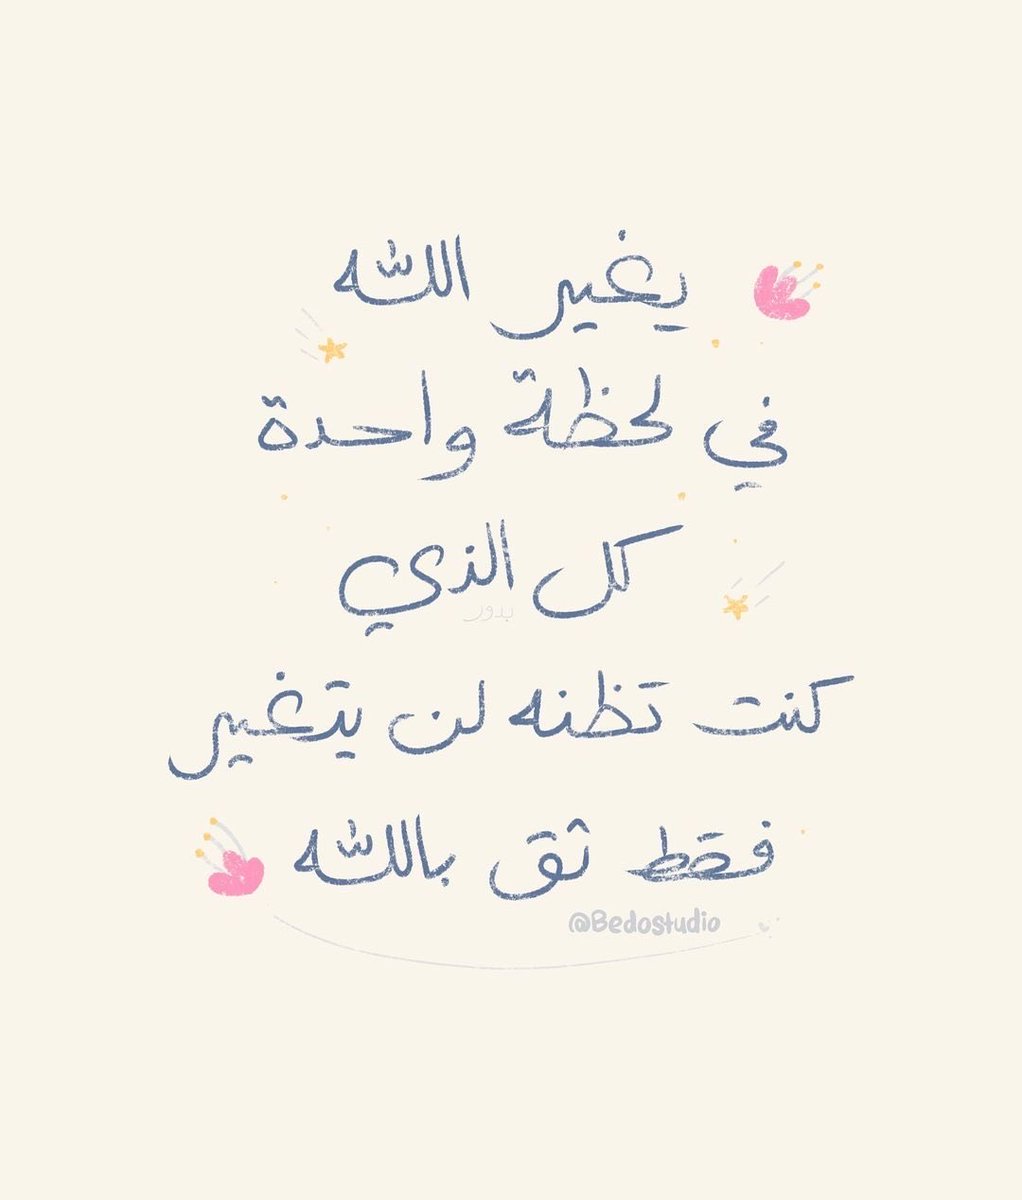 يغير الله
في لحظة واحدة
كل الذي
بدور
كنت تظنه لن يتغير
فقط ثق بالله
@Bedostudio